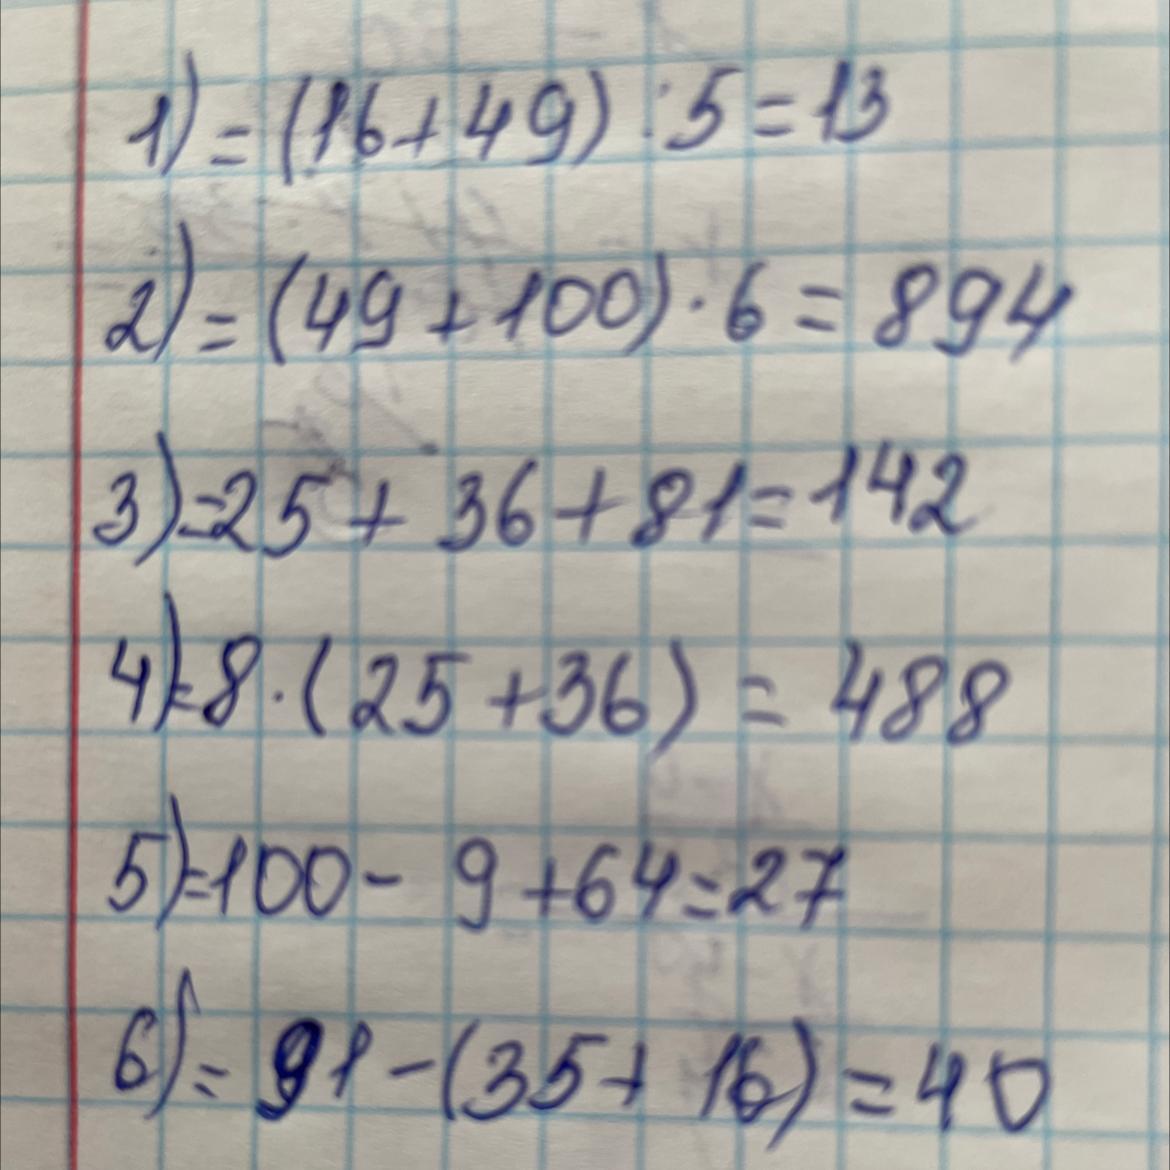 1) = (16+49) : 5 = 13
2) = (49+100) · 6 = 894
3) = 25 + 36 + 81 = 142
4) = 8 · (25 + 36) = 488
5) = 100 - 9 + 64 = 27
6) = 91 - (35 + 16) = 40